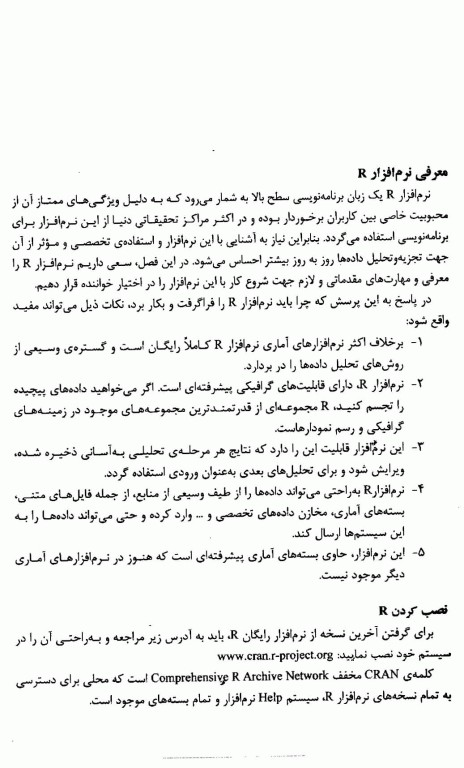 معرفی نرم‌افزار R
نرم‌افزار R یک زبان برنامه‌نویسی سطح بالا به شمار می‌رود که به دلیل ویژگی‌های ممتاز آن از
محبوبیت خاصی بین کاربران برخوردار بوده و در اکثر مراکز تحقیقاتی دنیا از این نرم‌افزار برای
برنامه‌نویسی استفاده می‌گردد. بنابراین نیاز به آشنایی با این نرم‌افزار و استفاده‌ی تخصصی و مؤثر از آن
جهت تجزیه‌وتحلیل داده‌ها روز به روز بیشتر احساس می‌شود. در این فصل، سعی داریم نرم‌افزار R را
معرفی و مهارت‌های مقدماتی و لازم جهت شروع کار با این نرم‌افزار را در اختیار خواننده قرار دهیم.
در پاسخ به این پرسش که چرا باید نرم‌افزار R را فراگرفت و بکار برد، نکات ذیل می‌تواند مفید
واقع شود:
۱- برخلاف اکثر نرم‌افزارهای آماری نرم‌افزار R کاملاً رایگان است و گستره‌ی وسیعی از
روش‌های تحلیل داده‌ها را در بردارد.
۲- نرم‌افزار R، دارای قابلیت‌های گرافیکی پیشرفته‌ای است. اگر می‌خواهید داده‌های پیچیده
را تجسم کنید، R مجموعه‌ای از قدرتمندترین مجموعه‌های موجود در زمینه‌های
گرافیکی و رسم نمودارهاست.
۳- این نرم‌افزار قابلیت این را دارد که نتایج هر مرحله‌ی تحلیلی به‌آسانی ذخیره شده،
ویرایش شود و برای تحلیل‌های بعدی به‌عنوان ورودی استفاده گردد.
۴- نرم‌افزارR به‌راحتی می‌تواند داده‌ها را از طیف وسیعی از منابع، از جمله فایل‌های متنی،
بسته‌های آماری، مخازن داده‌های تخصصی و ... وارد کرده و حتی می‌تواند داده‌ها را به
این سیستم‌ها ارسال کند.
۵- این نرم‌افزار، حاوی بسته‌های آماری پیشرفته‌ای است که هنوز در نرم‌افزارهای آماری
دیگر موجود نیست.
نصب کردن R
برای گرفتن آخرین نسخه از نرم‌افزار رایگان R، باید به آدرس زیر مراجعه و به‌راحتی آن را در
سیستم خود نصب نمایید: www.cran.r-project.org
کلمه‌ی CRAN مخفف Comprehensive R Archive Network است که محلی برای دسترسی
به تمام نسخه‌های نرم‌افزار R، سیستم Help نرم‌افزار و تمام بسته‌های موجود است.